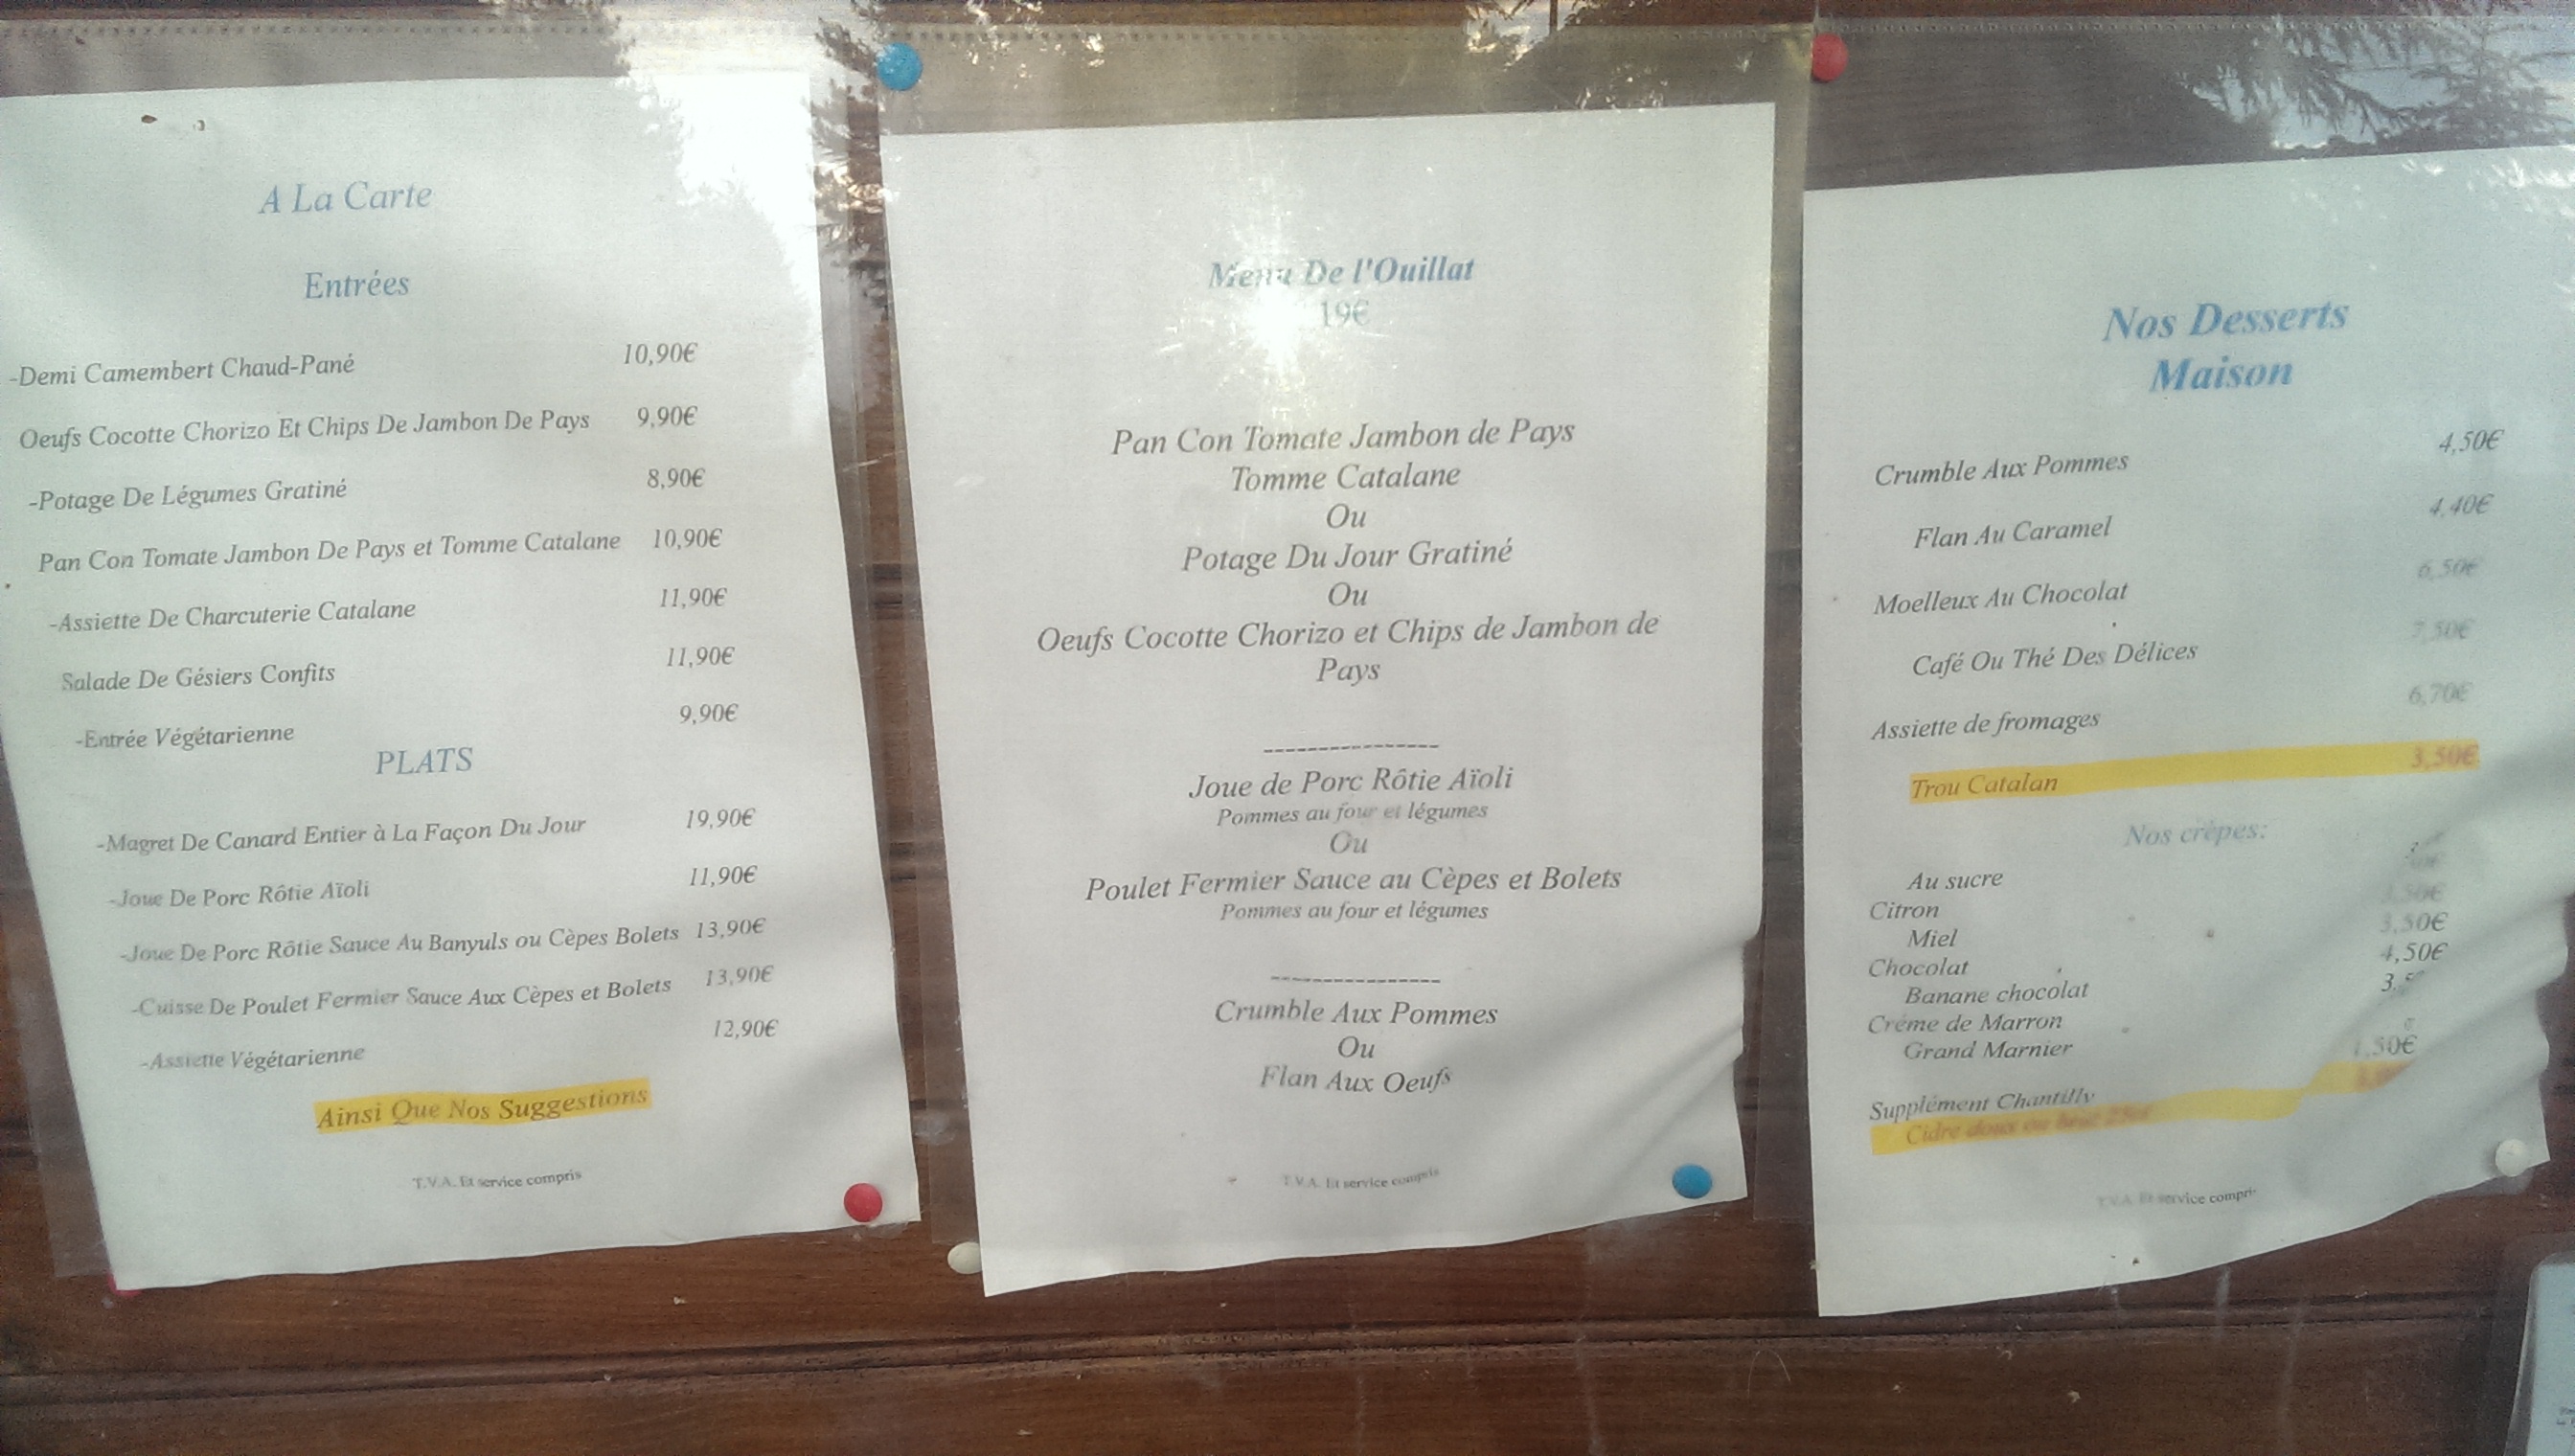 A La Carte
Entrées
-Demi Camembert Chaud-Pané 10,90€
Oeufs Cocotte Chorizo Et Chips De Jambon De Pays 9,90€
-Potage De Légumes Gratiné 8,90€
Pan Con Tomate Jambon De Pays et Tomme Catalane 10,90€
-Assiette De Charcuterie Catalane 11,90€
Salade De Gésiers Confits 11,90€
-Entrée Végétarienne 9,90€
PLATS
-Magret De Canard Entier à La Façon Du Jour 19,90€
-Joue De Porc Rôtie Aïoli 11,90€
-Joue De Porc Rôtie Sauce Au Banyuls ou Cèpes Bolets 13,90€
-Cuisse De Poulet Fermier Sauce Aux Cèpes et Bolets 13,90€
-Assiette Végétarienne 12,90€
Ainsi Que Nos Suggestions
T.V.A. Et service compris
Menu De l'Ouillat
19€
Pan Con Tomate Jambon de Pays
Tomme Catalane
Ou
Potage Du Jour Gratiné
Ou
Oeufs Cocotte Chorizo et Chips de Jambon de
Pays
----------------
Joue de Porc Rôtie Aïoli
Pommes au four et légumes
Ou
Poulet Fermier Sauce au Cèpes et Bolets
Pommes au four et légumes
----------------
Crumble Aux Pommes
Ou
Flan Aux Oeufs
T.V.A. Et service compris
Nos Desserts
Maison
Crumble Aux Pommes 4,50€
Flan Au Caramel 4,40€
Moelleux Au Chocolat 6,50€
Café Ou Thé Des Délices 7,50€
Assiette de fromages 6,70€
Trou Catalan 3,50€
Nos crèpes:
Au sucre
Citron 3,50€
Miel 3,50€
Chocolat 4,50€
Banane chocolat
Créme de Marron
Grand Marnier
Supplément Chantilly
Cidre doux ou brut
T.V.A. Et service compris